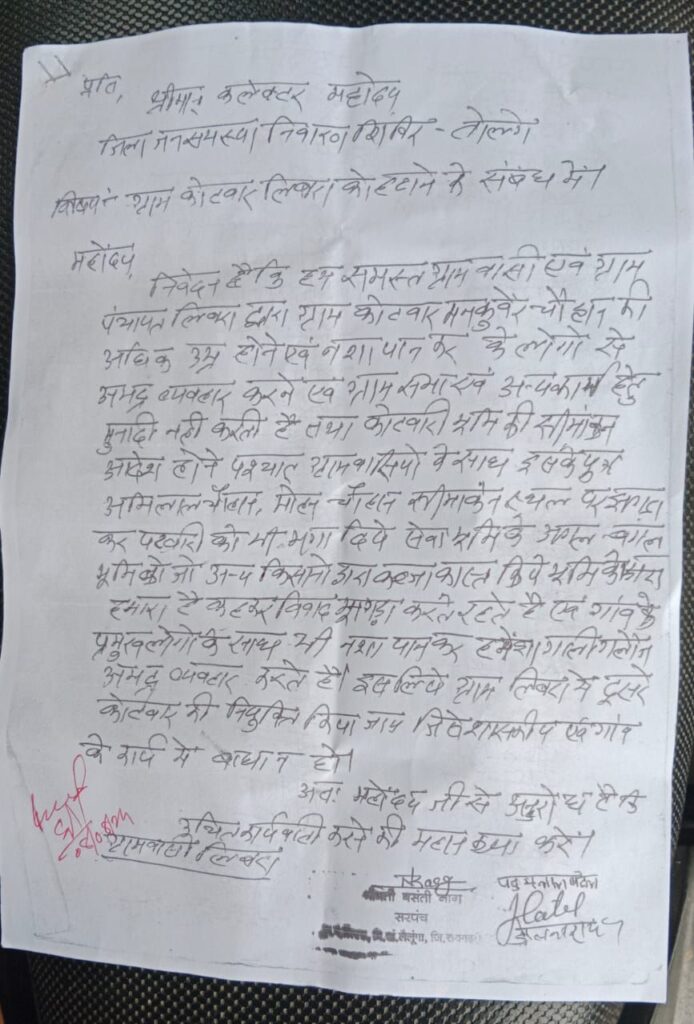 प्रति,
श्रीमान् कलेक्टर महोदय
जिला जनसमस्या निवारण शिविर - तोलगे
विषय:- ग्राम कोटवार लिबरा को हटाने के संबंध में।
महोदय,
निवेदन है कि हम समस्त ग्राम वासी एवं ग्राम
पंचायत लिबरा द्वारा ग्राम कोटवार मनकुंवर चौहान की
अधिक उम्र होने एवं नशा पान कर के लोगो से
अभद्र व्यवहार करने एवं ग्राम सभा एवं अन्य कार्य हेतु
मुनादी नही करती है तथा कोटवारी भूमि की सीमांकन
आदेश होने पश्चात् ग्रामवासियो के साथ इसके पुत्र
चौहान, मोहन चौहान सीमांकन स्थल पर झगड़ा
कर पटवारी को भी भगा दिये सेवा भूमि के अगल बगल
भूमि को जो अन्य किसानो द्वारा कब्जा कास्त किये भूमि को
हमारा है कहकर विवाद झगड़ा करते रहते है एवं गांव के
प्रमुख लोगो के साथ भी नशा पान कर हमेशा गाली गलौज
अभद्र व्यवहार करते है। इसलिये ग्राम लिबरा मे दूसरे
कोटवार की नियुक्ति किया जाय जिसे शासकीय एवं गांव
के कार्य मे बाधा न हो।
अतः महोदय जी से अनुरोध है कि
उचित कार्यवाही करने की महान कृपा करें।
ग्रामवासी लिबरा
बसंती नाग
सरपंच
वि.खं. लैलूंगा, जि. रायगढ़